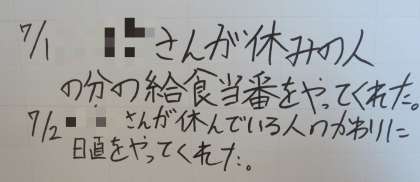 7/1 さんが休みの人
の分の給食当番をやってくれた。
7/2 さんが休んでいる人のかわりに
日直をやってくれた。